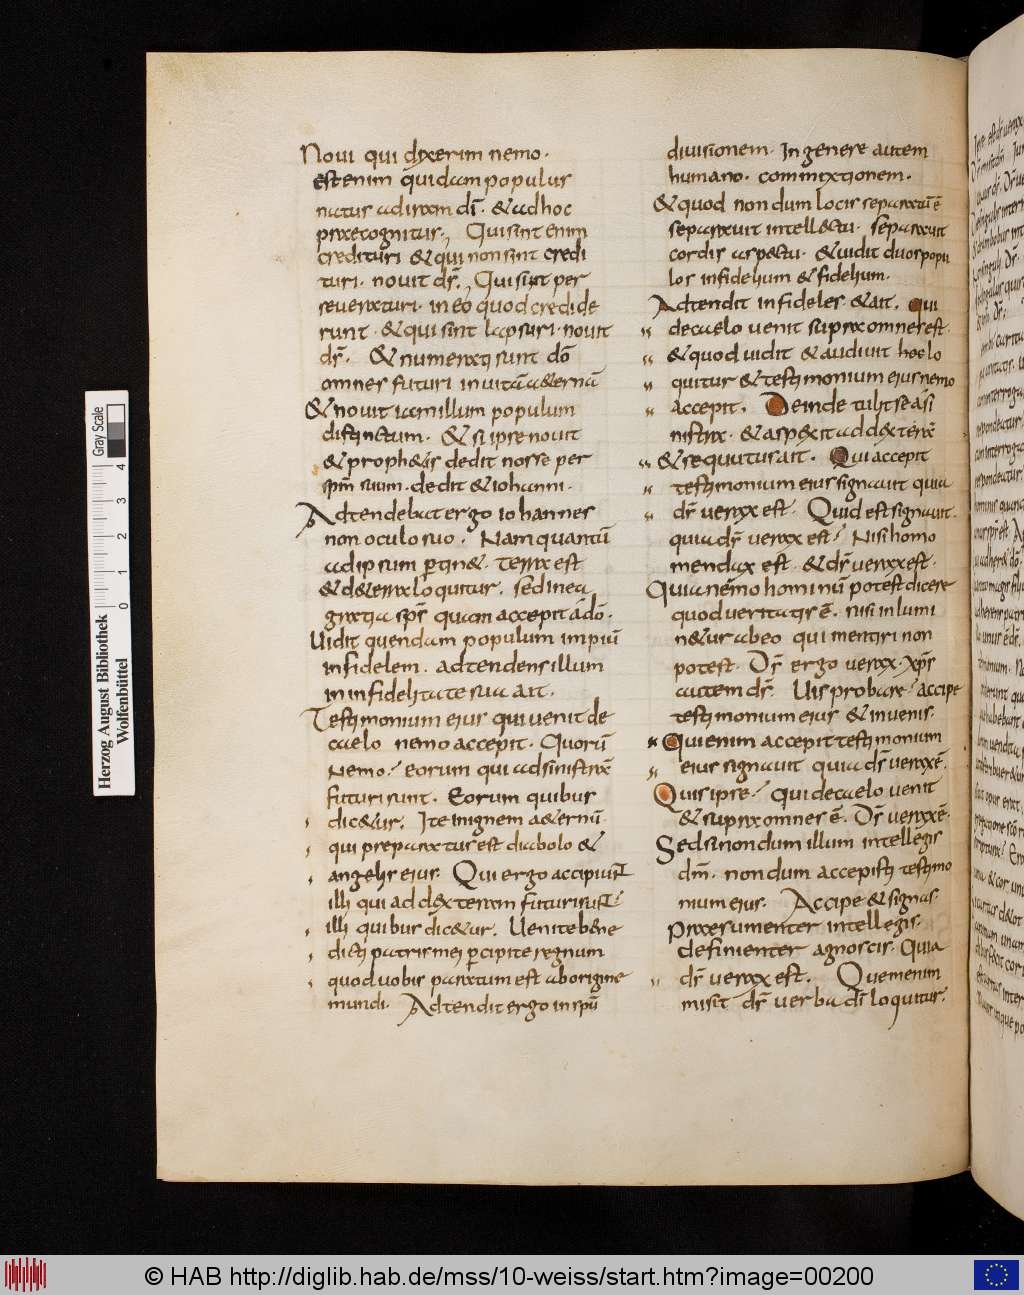 Noui qui dyxerim nemo.
est enim quidam populus
natus adiram dī. & ad hoc
praecognitus, Qui sint enim
credituri & qui non sint credi
turi. nouit dr̄, Qui sint per
seueraturi. in eo quod credide
runt. & qui sint lapsuri. nouit
dr̄. & numerati sunt dō
omnes futuri in uitā aeternā
& nouit iam illum populum
distinctum. & si ipse nouit
& prophetis dedit nosse per
spm̄ suum. dedit & iohanni.
Adtendebat ergo iohannes
non oculo suo. Nam quantū
ad ipsum ptin&. terra est
& de terra loquitur. sed in ea
gratia spr̄ quam accepit a dō.
Uidit quendam populum impiū
infidelem. adtendens illum
in infidelitate sua ait.
Testimonium eius qui uenit de
caelo nemo accepit. Quorū
Nemo. Eorum qui ad sinistrā
futuri sunt. Eorum quibus
dic&ur. Ite in ignem aeternū.
qui preparatus est diabolo &
angelis eius. Qui ergo accipiunt
illi qui ad dexteram futuri sunt
illi quibus dic&ur. Uenite bene
dicti patris mei pcipite regnum
quod uobis paratum est ab origine
mundi. Adtendit ergo in spū
diuisionem. In genere autem
humano. commixtionem.
& quod nondum locis separatū ē
separauit intellectu. separauit
cordis aspectu. & uidit duos popu
los infidelium & fidelium.
Adtendit infideles & ait. qui
de caelo uenit supra omnes est.
& quod uidit & audiuit hoc lo
quitur & testimonium eius nemo
accepit. Deinde tulit se a si
nistra. & aspexit ad dexterā
& sequutus ait. Qui accepit
testimonium eius signauit quia
dr̄ uerax est. Quid est signauit.
quia dr̄ uerax est. Nisi homo
mendax est. & dr̄ uerax est.
Quia nemo hominū potest dicere
quod ueritatis ē. nisi in lumi
n&ur ab eo qui mentiri non
potest. Dr̄ ergo uerax. xpr̄
autem dr̄. Uis probare accipe
testimonium eius & inuenis.
Qui enim accepit testimonium
eius signauit quia dr̄ uerax ē.
Quis ipse. Qui de caelo uenit
& supra omnes ē. Dr̄ uerax ē.
Sed si nondum illum intellegis
dm̄. nondum accepisti testimo
nium eius. Accipe & signas.
Praesumenter intellegis.
definienter agnoscis. Quia
dr̄ uerax est. Quem enim
misit dr̄ uerba dī loquitur.
Herzog August Bibliothek
Wolfenbüttel
Gray Scale
0 1 2 3 4
© HAB http://diglib.hab.de/mss/10-weiss/start.htm?image=00200